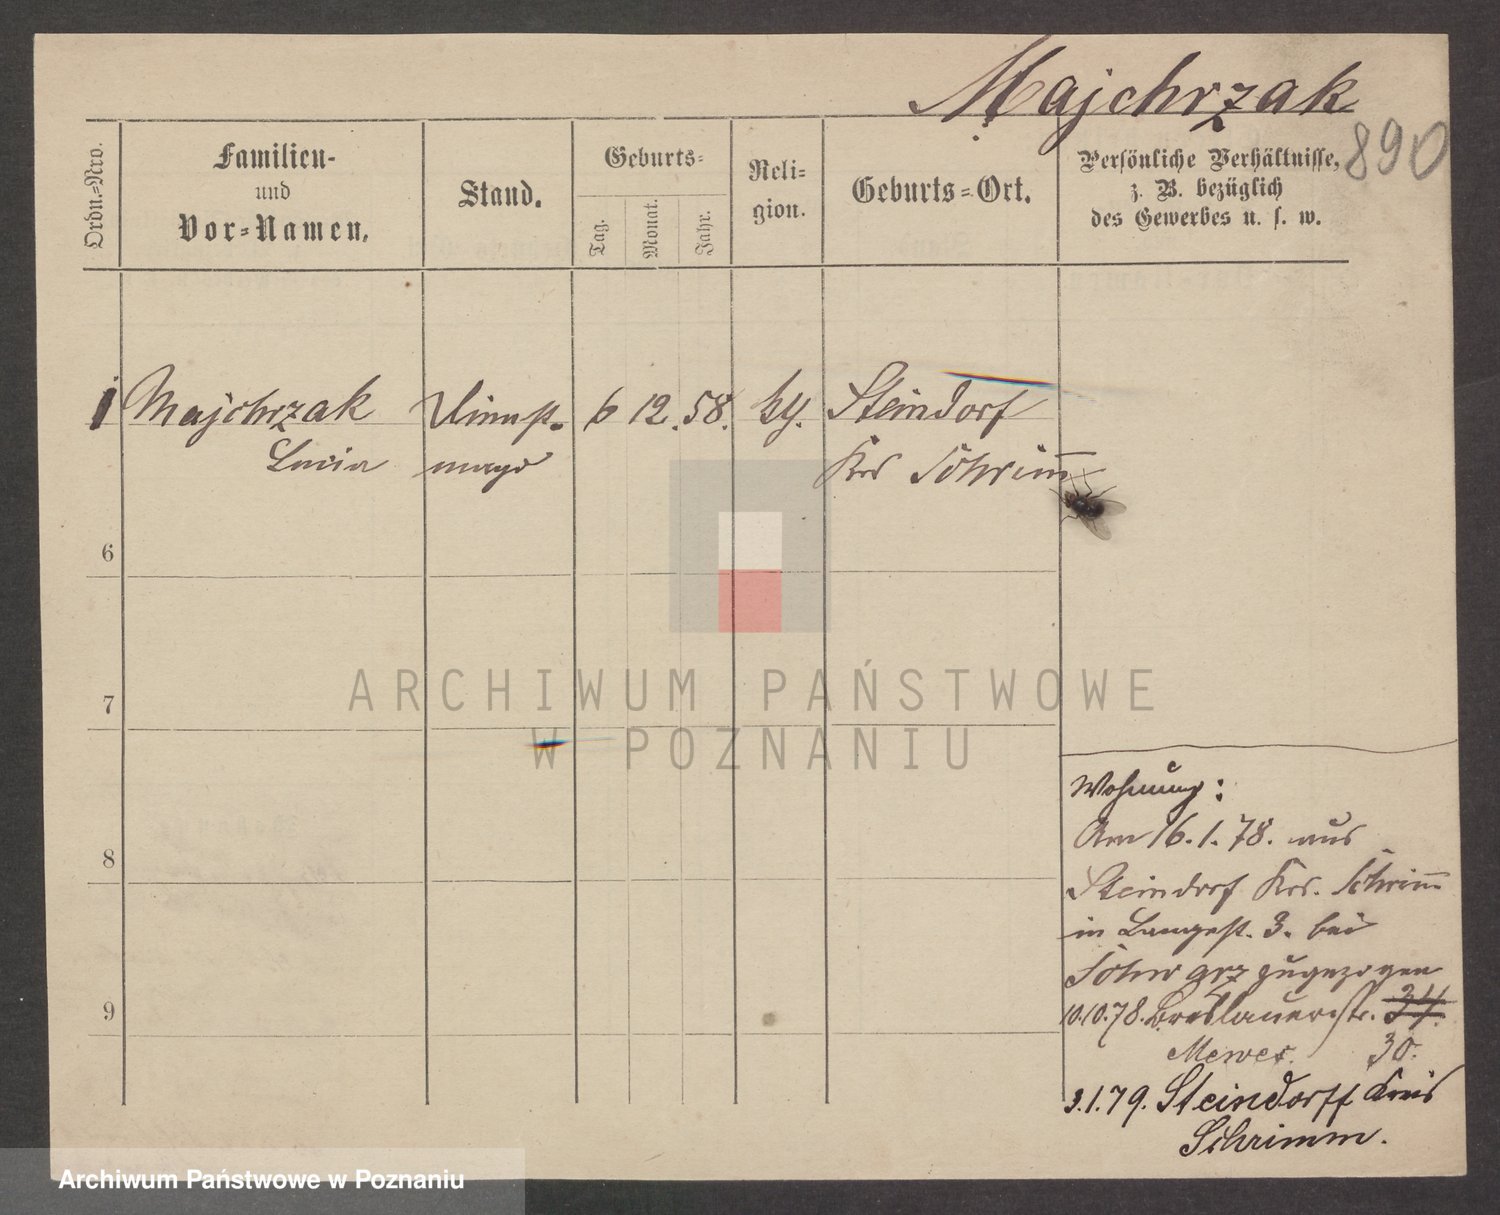 Majchrzak
890
Ordn.=Nro.
Familien-
und
Vor=Namen.
Stand.
Geburts=
Tag.
Monat.
Jahr.
Reli=
gion.
Geburts=Ort.
Persönliche Verhältnisse,
z. B. bezüglich
des Gewerbes u. s. w.
1 Majchrzak Dienst- 6 12. 58. Steindorf
Lucia magd Krs Schrim̅
6
7
8
9
ARCHIWUM PAŃSTWOWE
W POZNANIU
Wohnung:
Am 16.1.78. aus
Steindorf Krs. Schrim̅
in Langestr. 3. bei
zugezogen
10.10.78. Breslauerstr. 34.
Mewes. 30.
3.1.79. Steindorff Kreis
Schrimm.
Archiwum Państwowe w Poznaniu